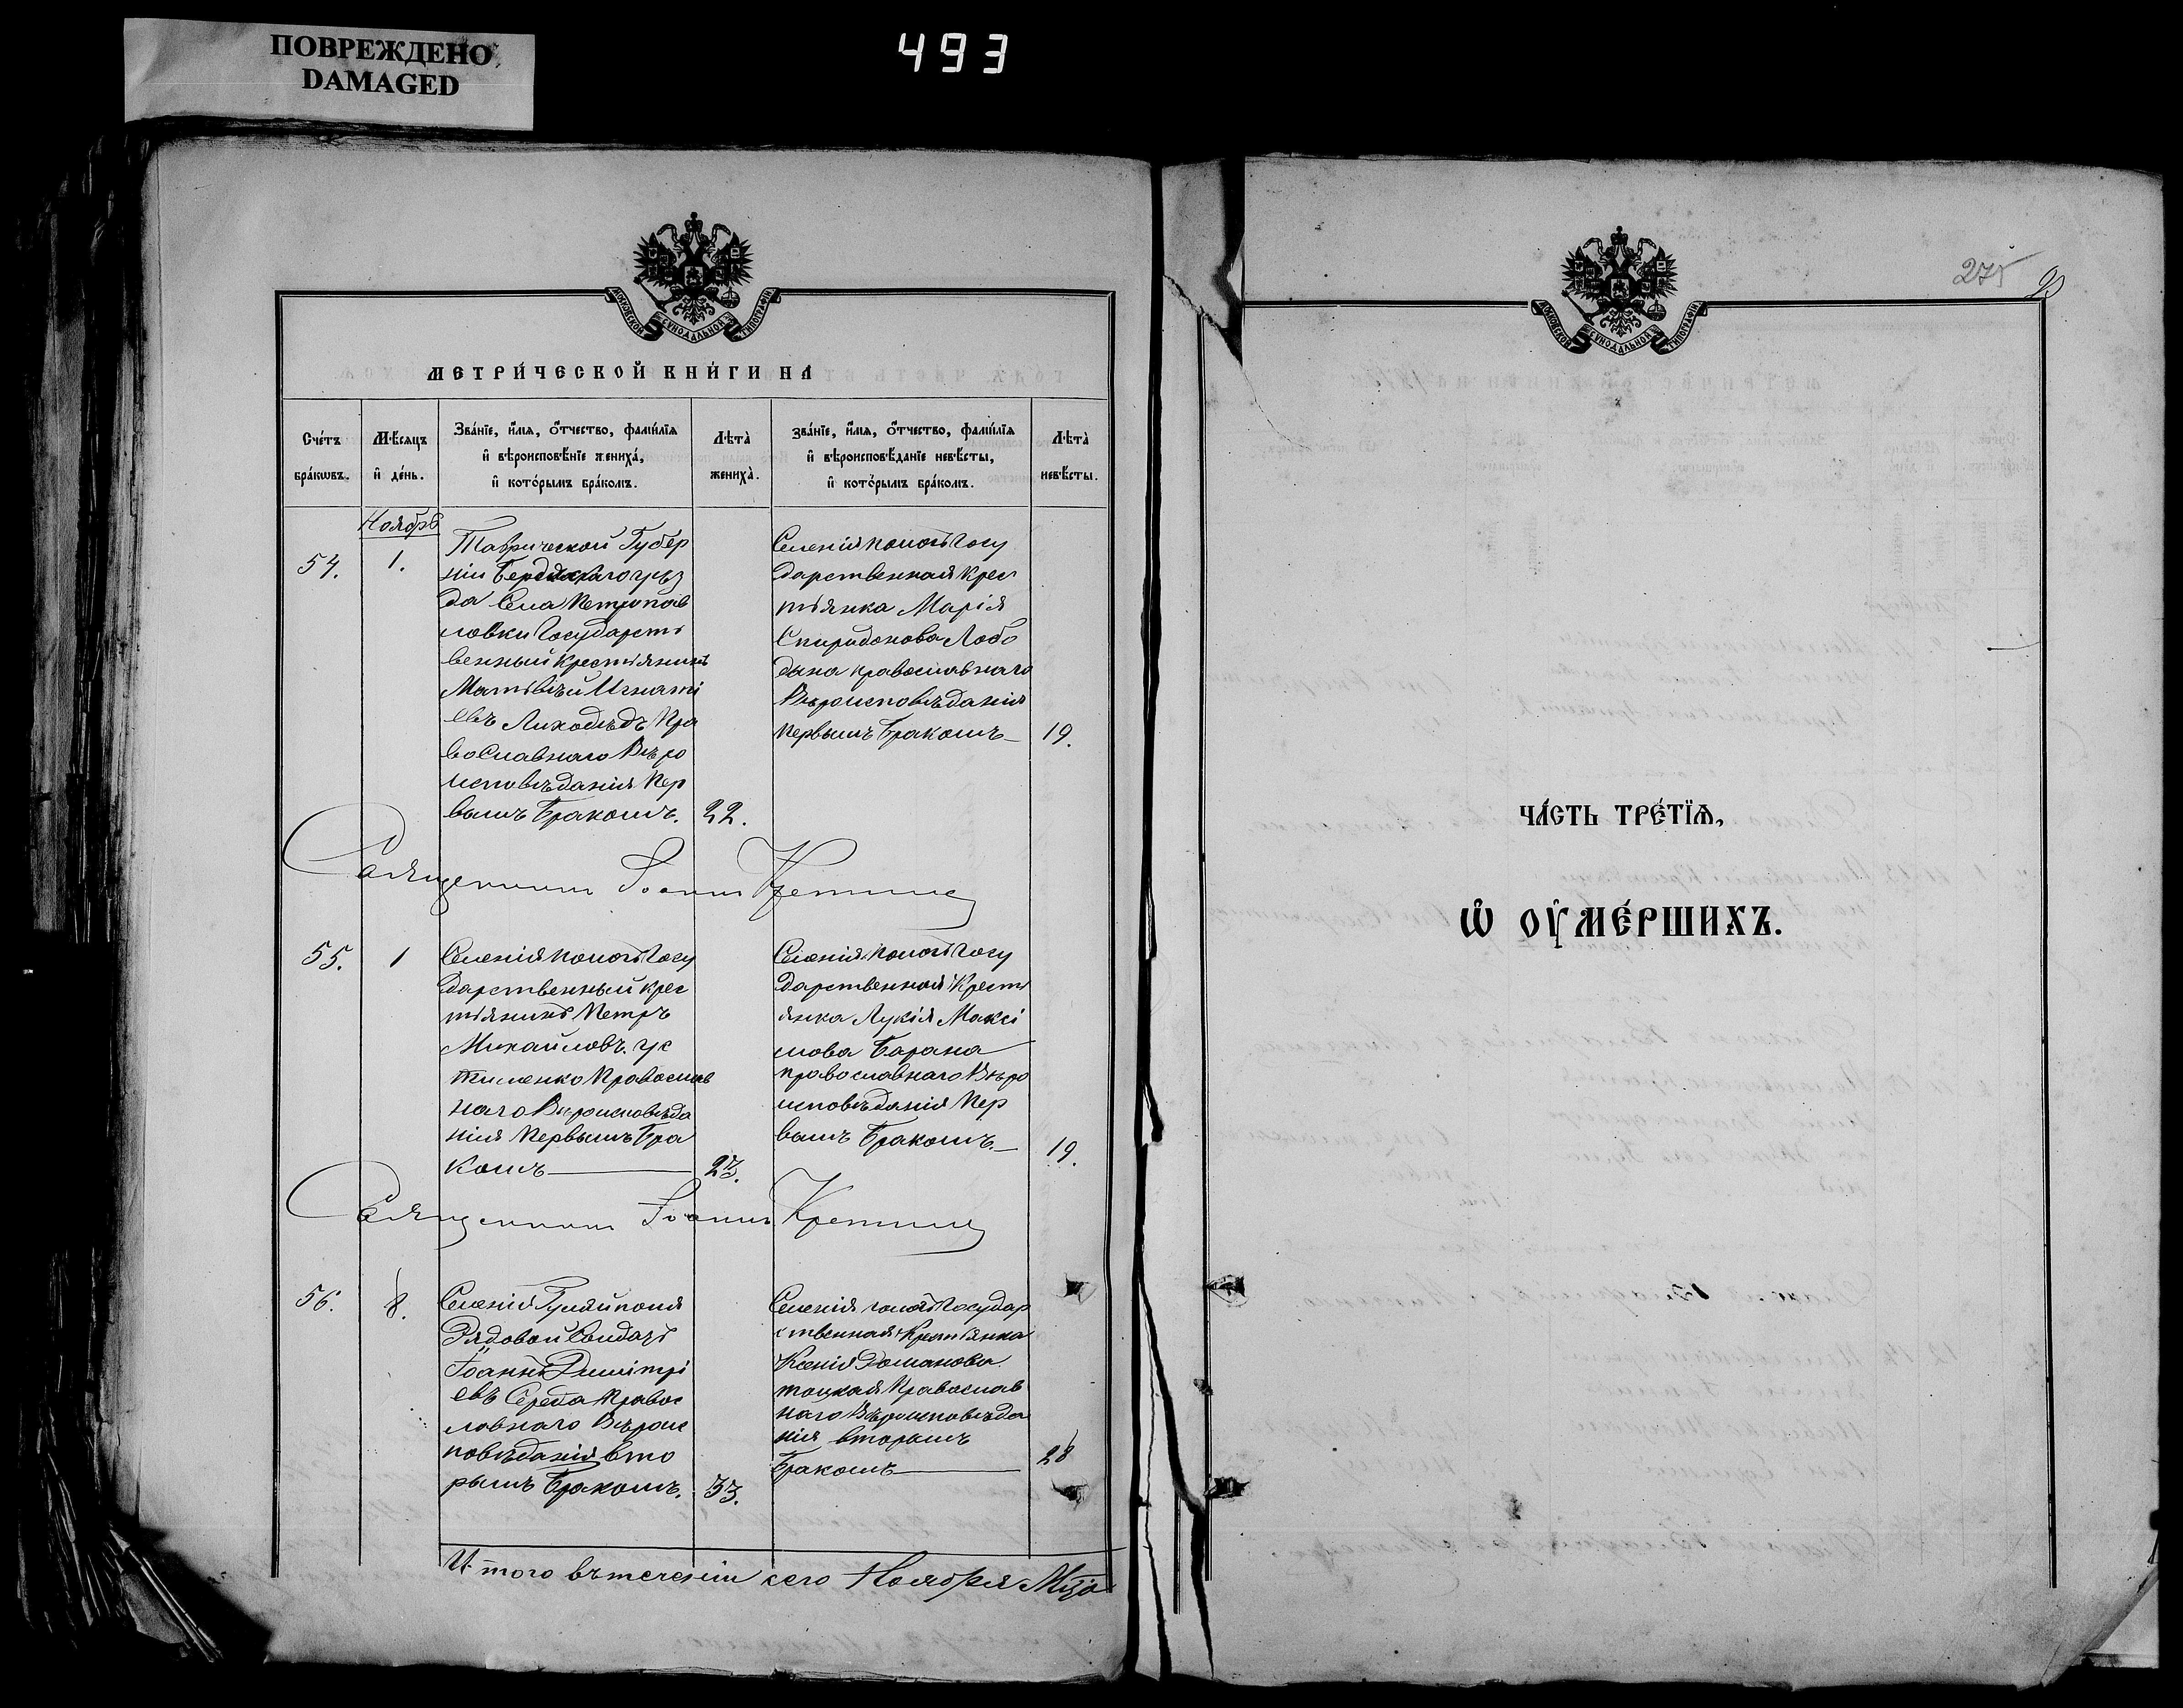 ПОВРЕЖДЕНО
DAMAGED
493
275
МОСКОВСКОЙ СѴНОДАЛЬНОЙ ТИПОГРАФІИ
МЕТРИ́ЧЕСКОЙ КНИ́ГИ НА
Сче́тъ бра́кѡвъ.
Мѣ́сяцъ и҆ де́нь.
Зва́нїе, и҆́мѧ, ѻ҆́тчество, фамі́лїѧ
и҆ вѣроисповѣ́нїе жениха̀,
и҆ кото́рымъ бра́комъ.
Лѣта̀ жениха̀.
зва́нїе, и҆́мѧ, ѻ҆́тчество, фамі́лїѧ
и҆ вѣроисповѣ́данїе невѣ́сты,
и҆ кото́рымъ бра́комъ.
Лѣта̀ невѣ́сты.
Ноябрь
54.
1.
Таврической Губер
ніи Бердянскаго уѣз
да Села Петропав
ловки Государств
венный Крестьянинъ
Матвѣй Игнаті
евъ Лиходѣдъ Пра
вославнаго Вѣро
исповѣданія Пер
вымъ Бракомъ.
22.
Селенія Пологъ Госу
дарственная Крес
тьянка Марія
Спиридонова Лобо
дына православнаго
Вѣроисповѣданія
первымъ Бракомъ
19.
Священникъ Іоаннъ
55.
1
Селенія Пологъ Госу
дарственный Крес
тьянинъ Петръ
Михайловъ Ус
тименко Православ
наго Вѣроисповѣда
нія Первымъ Бра
комъ
23.
Селенія Пологъ Госу
дарственная Кресть
янка Лукія Максі
мова Барана
православнаго Вѣро
исповѣданія Пер
вымъ Бракомъ.
19.
Священникъ Іоаннъ
56.
8.
Селенія Гуляйполя
Рядовой Солдатъ
Іоаннъ Димітрі
евъ Середа Правос
лавнаго Вѣроис
повѣданія вто
рымъ Бракомъ.
33.
Селенія Пологъ Государ
ственная Крестьянка
Ксенія Романова
Православ
наго Вѣроисповѣда
нія вторымъ
Бракомъ
28
Итого въ теченіи сего Ноября Мѣца
МОСКОВСКОЙ СѴНОДАЛЬНОЙ ТИПОГРАФІИ
ЧА́СТЬ ТРЕ́ТЇѦ,
Ѡ҆ ОУ҆МЕ́РШИХЪ.